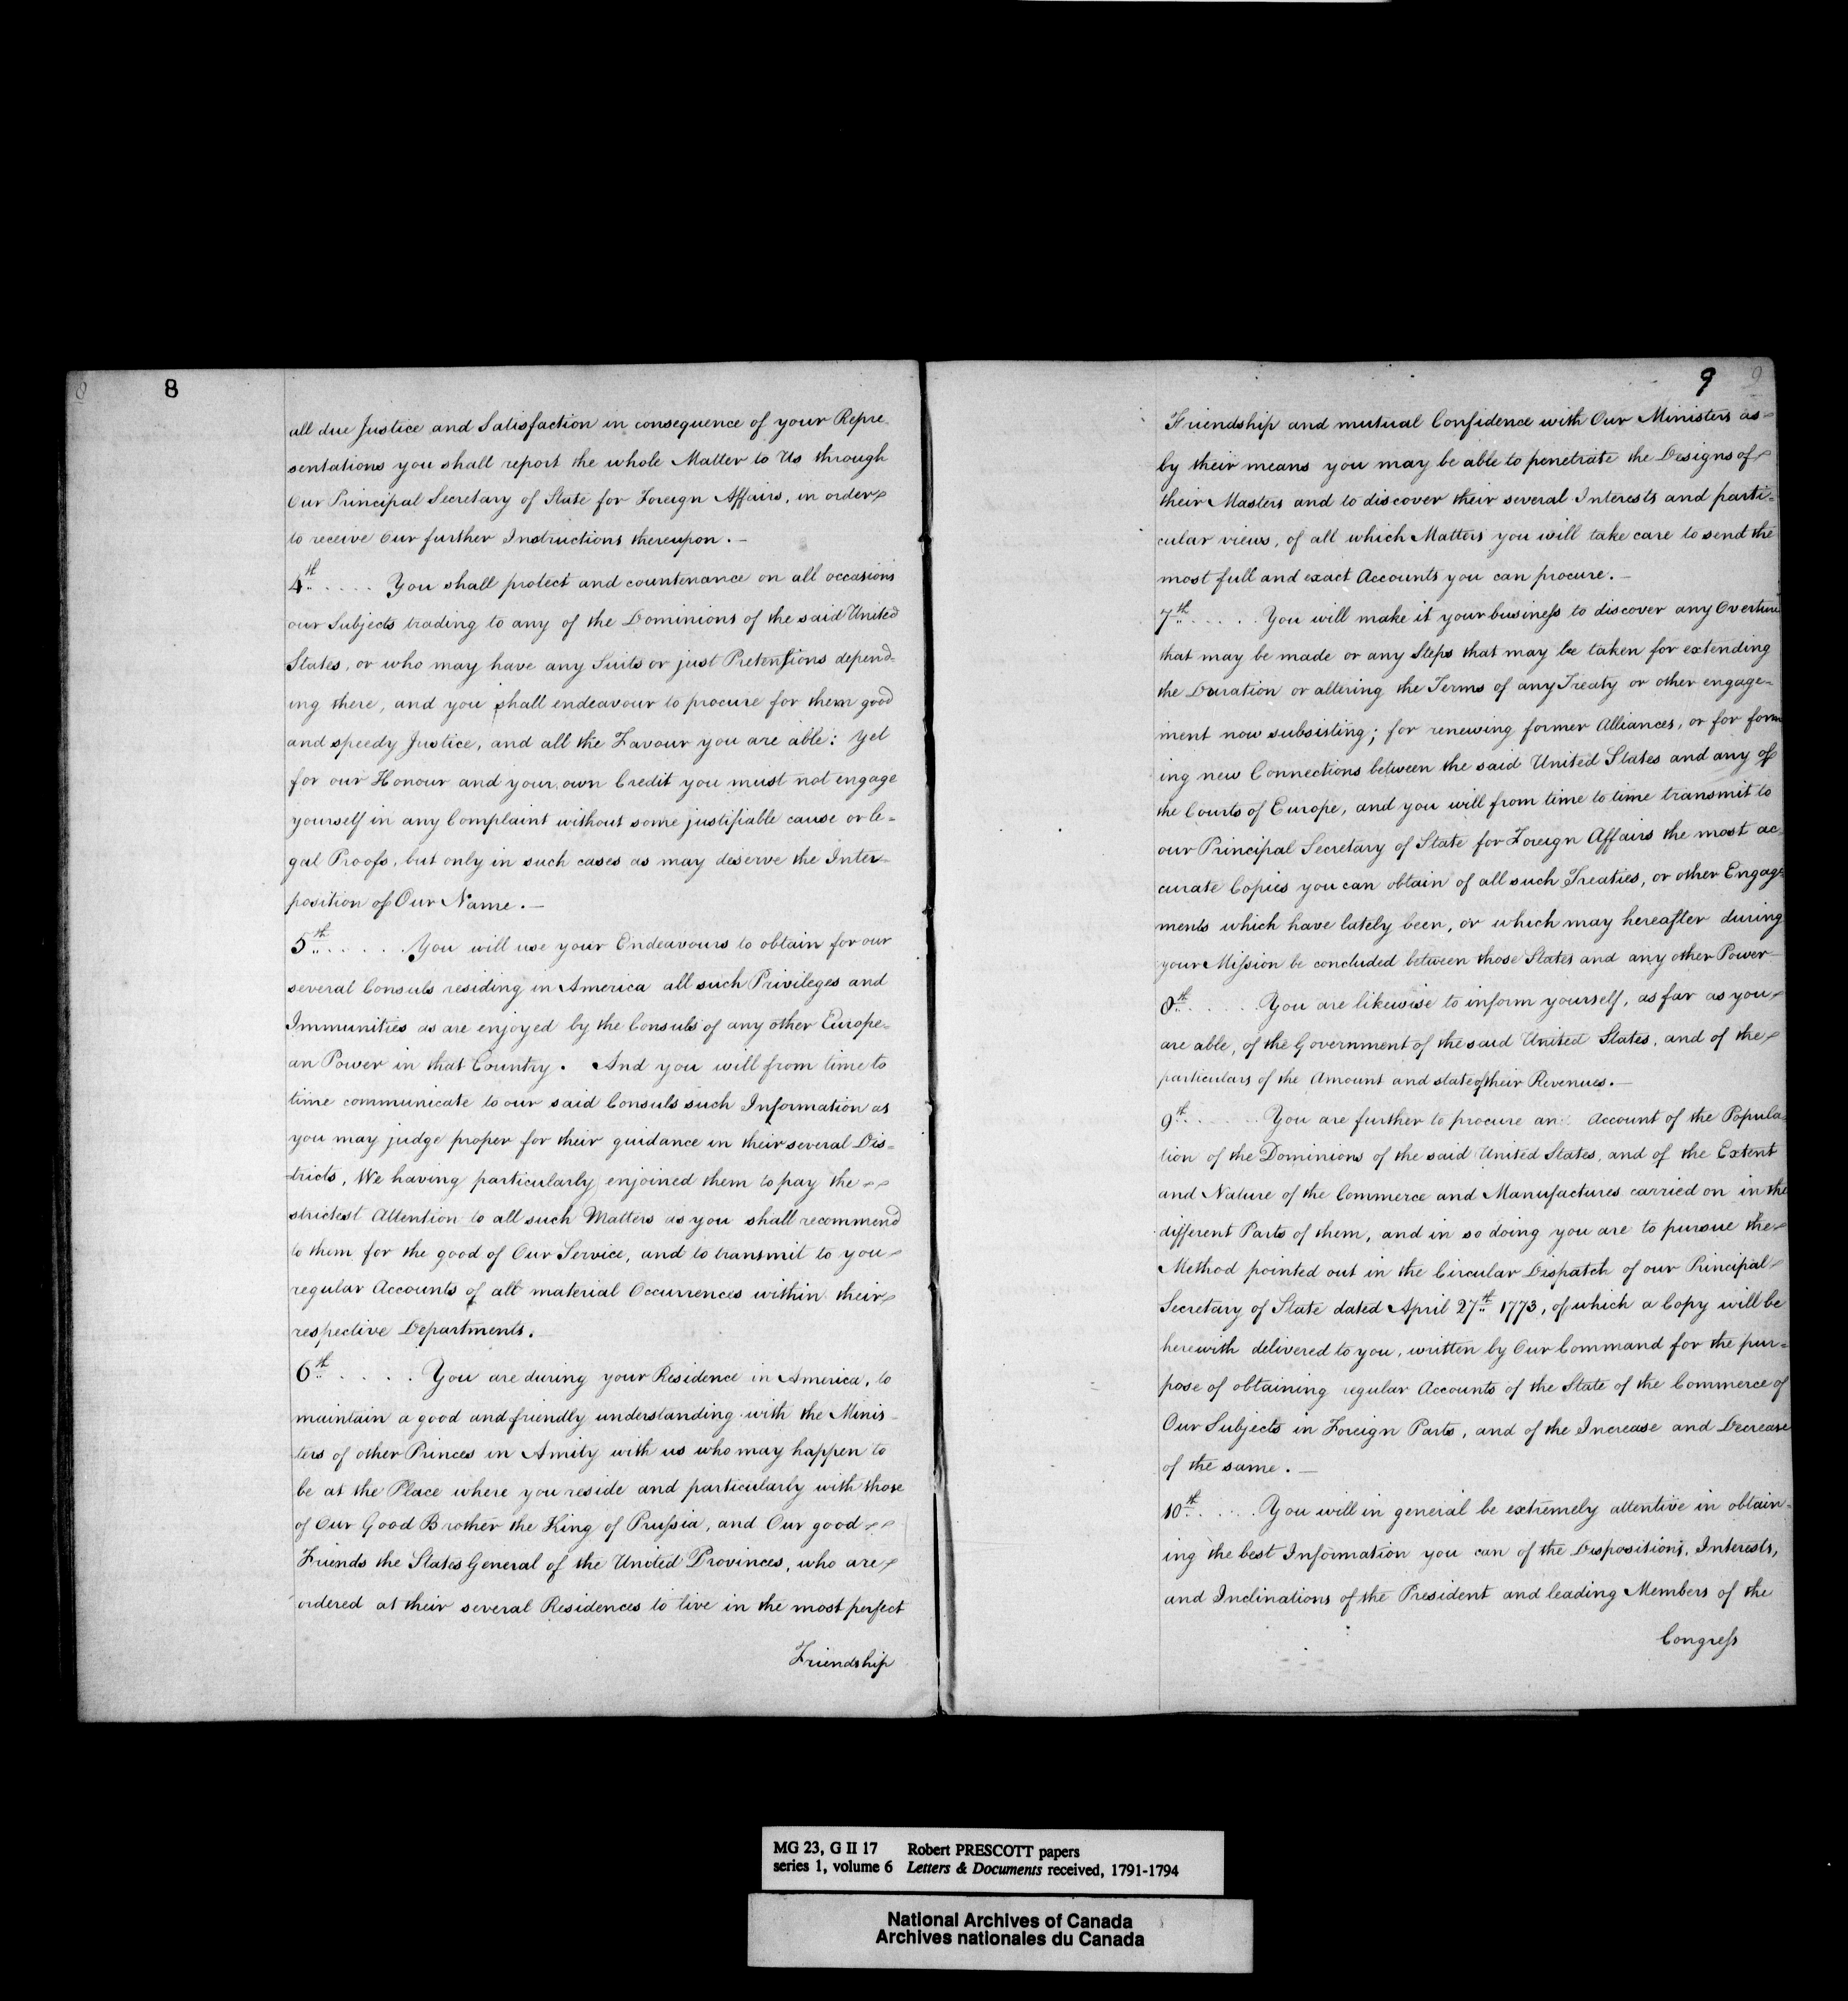 8
all due Justice and Satisfaction in consequence of your Repre
sentations you shall report the whole Matter to Us through
Our Principal Secretary of State for Foreign Affairs, in order
to receive Our further Instructions thereupon. —
4th. . . . . You shall protect and countenance on all occasions
our Subjects trading to any of the Dominions of the said United
States, or who may have any Suits or just Pretensions depend-
ing there, and you shall endeavour to procure for them good
and speedy Justice, and all the Favour you are able: Yet
for our Honour and your own Credit you must not engage
yourself in any Complaint without some justifiable cause or le-
gal Proofs, but only in such cases as may deserve the Inter-
position of Our Name. —
5th. . . . . . You will use your Endeavours to obtain for our
several Consuls residing in America all such Privileges and
Immunities as are enjoyed by the Consuls of any other Europe-
an Power in that Country. And you will from time to
time communicate to our said Consuls such Information as
you may judge proper for their guidance in their several Dis-
tricts, We having particularly enjoined them to pay the
strictest Attention to all such Matters as you shall recommend
to them for the good of Our Service, and to transmit to you
regular Accounts of all material Occurrences within their
respective Departments.
6th. . . . . You are during your Residence in America, to
maintain a good and friendly understanding with the Minis-
ters of other Princes in Amity with us who may happen to
be at the Place where you reside and particularly with those
of Our Good Brother the King of Prussia, and Our good
Friends the States General of the United Provinces, who are
ordered at their several Residences to live in the most perfect
Friendship
9
Friendship and mutual Confidence with Our Ministers as
by their means you may be able to penetrate the Designs of
their Masters and to discover their several Interests and parti-
cular views, of all which Matters you will take care to send the
most full and exact Accounts you can procure. —
7th. . . . . . You will make it your business to discover any Overture
that may be made or any Steps that may be taken for extending
the Duration or altering the Terms of any Treaty or other engage-
ment now subsisting; for renewing former Alliances, or for form
ing new Connections between the said United States and any of
the Courts of Europe, and you will from time to time transmit to
our Principal Secretary of State for Foreign Affairs the most ac-
curate Copies you can obtain of all such Treaties, or other Engage-
ments which have lately been, or which may hereafter during
your Mission be concluded between those States and any other Power —
8th. . . . . . You are likewise to inform yourself, as far as you
are able, of the Government of the said United States, and of the
particulars of the Amount and state of their Revenues. —
9th. . . . . . You are further to procure an Account of the Popula-
tion of the Dominions of the said United States, and of the Extent
and Nature of the Commerce and Manufactures carried on in the
different Parts of them, and in so doing you are to pursue the
Method pointed out in the Circular Dispatch of our Principal
Secretary of State dated April 27th. 1773, of which a Copy will be
herewith delivered to you, written by Our Command for the pur-
pose of obtaining regular Accounts of the State of the Commerce of
Our Subjects in Foreign Parts, and of the Increase and Decrease
of the same. —
10th. . . . . You will in general be extremely attentive in obtain-
ing the best Information you can of the Dispositions, Interests,
and Inclinations of the President and leading Members of the
Congress
MG 23, G II 17 Robert PRESCOTT papers
series 1, volume 6 Letters & Documents received, 1791-1794
National Archives of Canada
Archives nationales du Canada